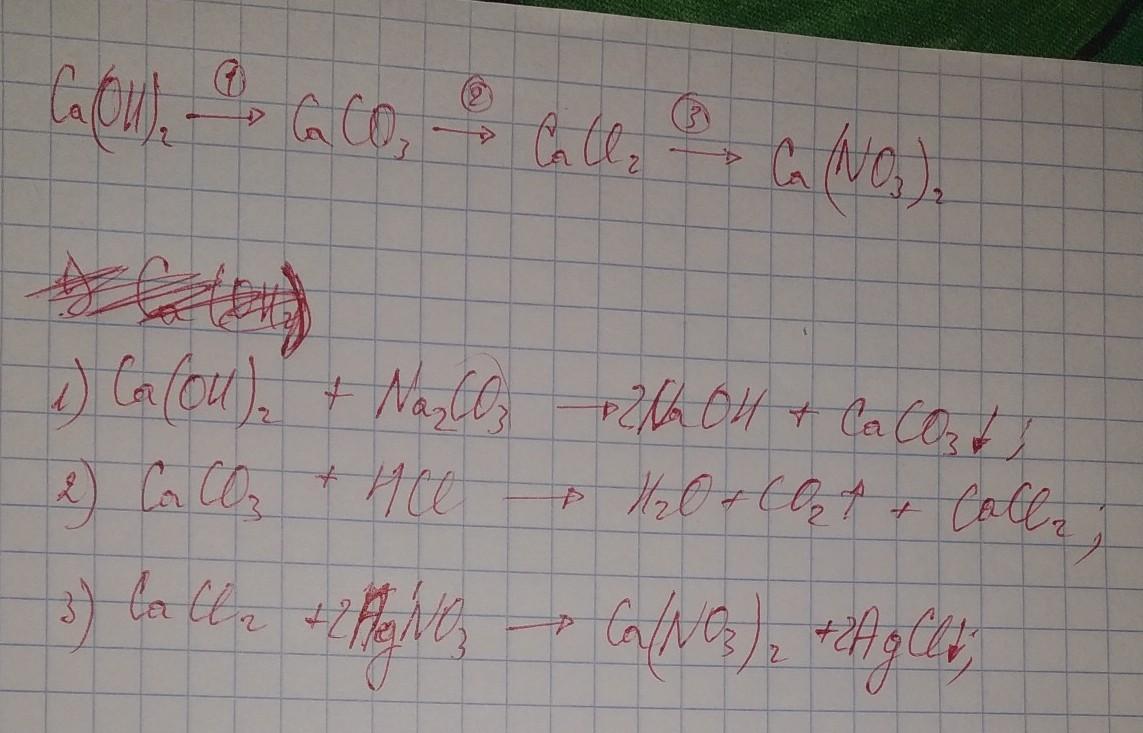 Ca(OH)₂ ①→ CaCO₃ ②→ CaCl₂ ③→ Ca(NO₃)₂
1) Ca(OH)₂ + Na₂CO₃ → 2NaOH + CaCO₃↓;
2) CaCO₃ + HCl → H₂O + CO₂↑ + CaCl₂;
3) CaCl₂ + 2AgNO₃ → Ca(NO₃)₂ + 2AgCl↓;